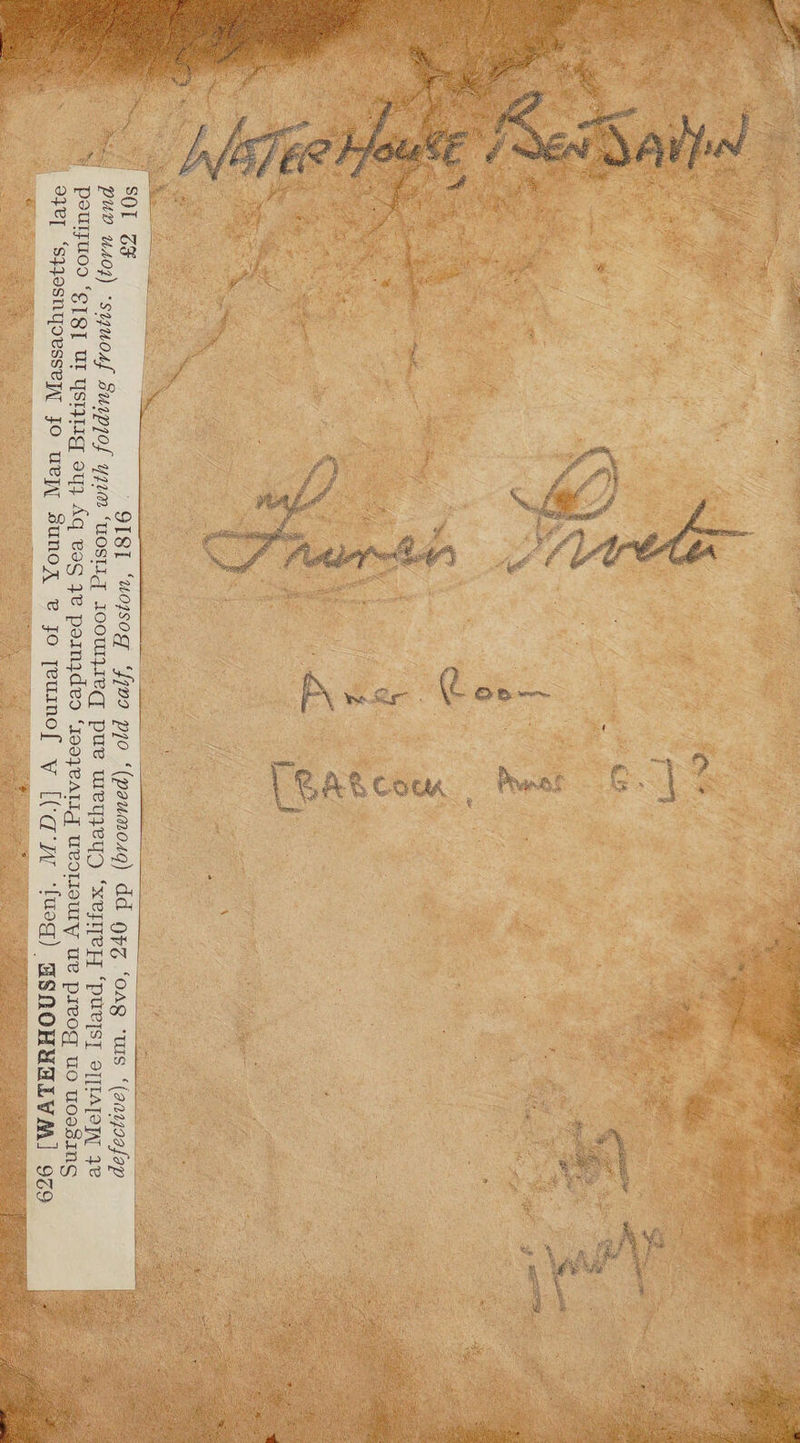 WATERHOUSE BENJAMIN
Amer. Room
[BABCOCK, Amos G.]?
626 [WATERHOUSE (Benj. M.D.)] A Journal of a Young Man of Massachusetts, late
Surgeon on Board an American Privateer, captured at Sea by the British in 1813, confined
at Melville Island, Halifax, Chatham and Dartmoor Prison, with folding frontis. (torn and
defective), sm. 8vo, 240 pp (browned), old calf, Boston, 1816 £2 10s